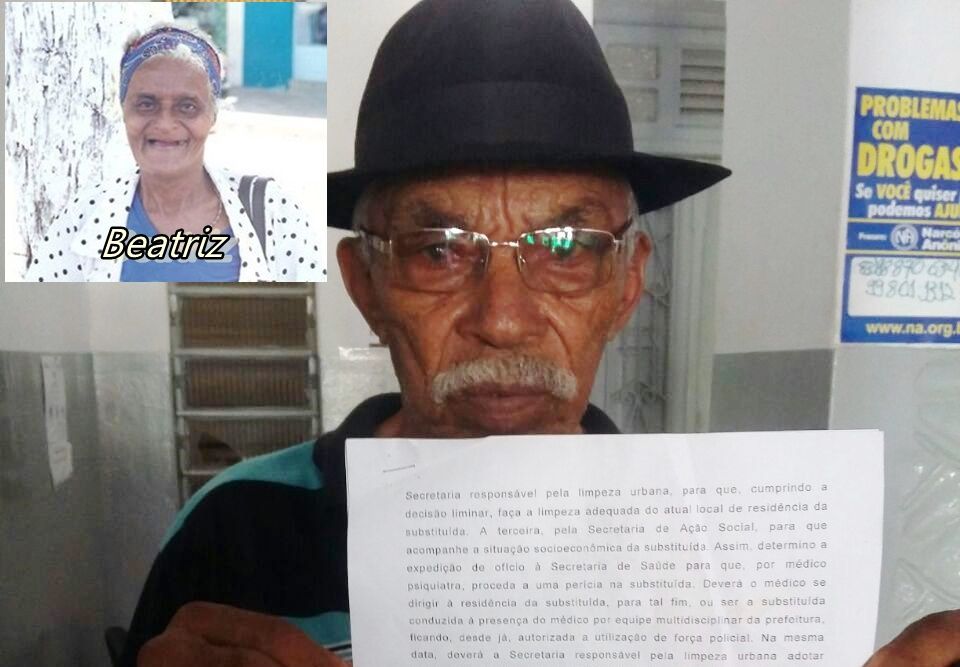 Beatriz
PROBLEMAS
COM
DROGAS
Se VOCÊ quiser
podemos AJU
NA
www.na.org.b
Secretaria responsável pela limpeza urbana, para que, cumprindo a
decisão liminar, faça a limpeza adequada do atual local de residência da
substituída. A terceira, pela Secretaria de Ação Social, para que
acompanhe a situação socioeconômica da substituída. Assim, determino a
expedição de ofício à Secretaria de Saúde para que, por médico
psiquiatra, proceda a uma perícia na substituída. Deverá o médico se
dirigir à residência da substituída, para tal fim, ou ser a substituída
conduzida à presença do médico por equipe multidisciplinar da prefeitura,
ficando, desde já, autorizada a utilização de força policial. Na mesma
data, deverá a Secretaria responsável pela limpeza urbana adotar